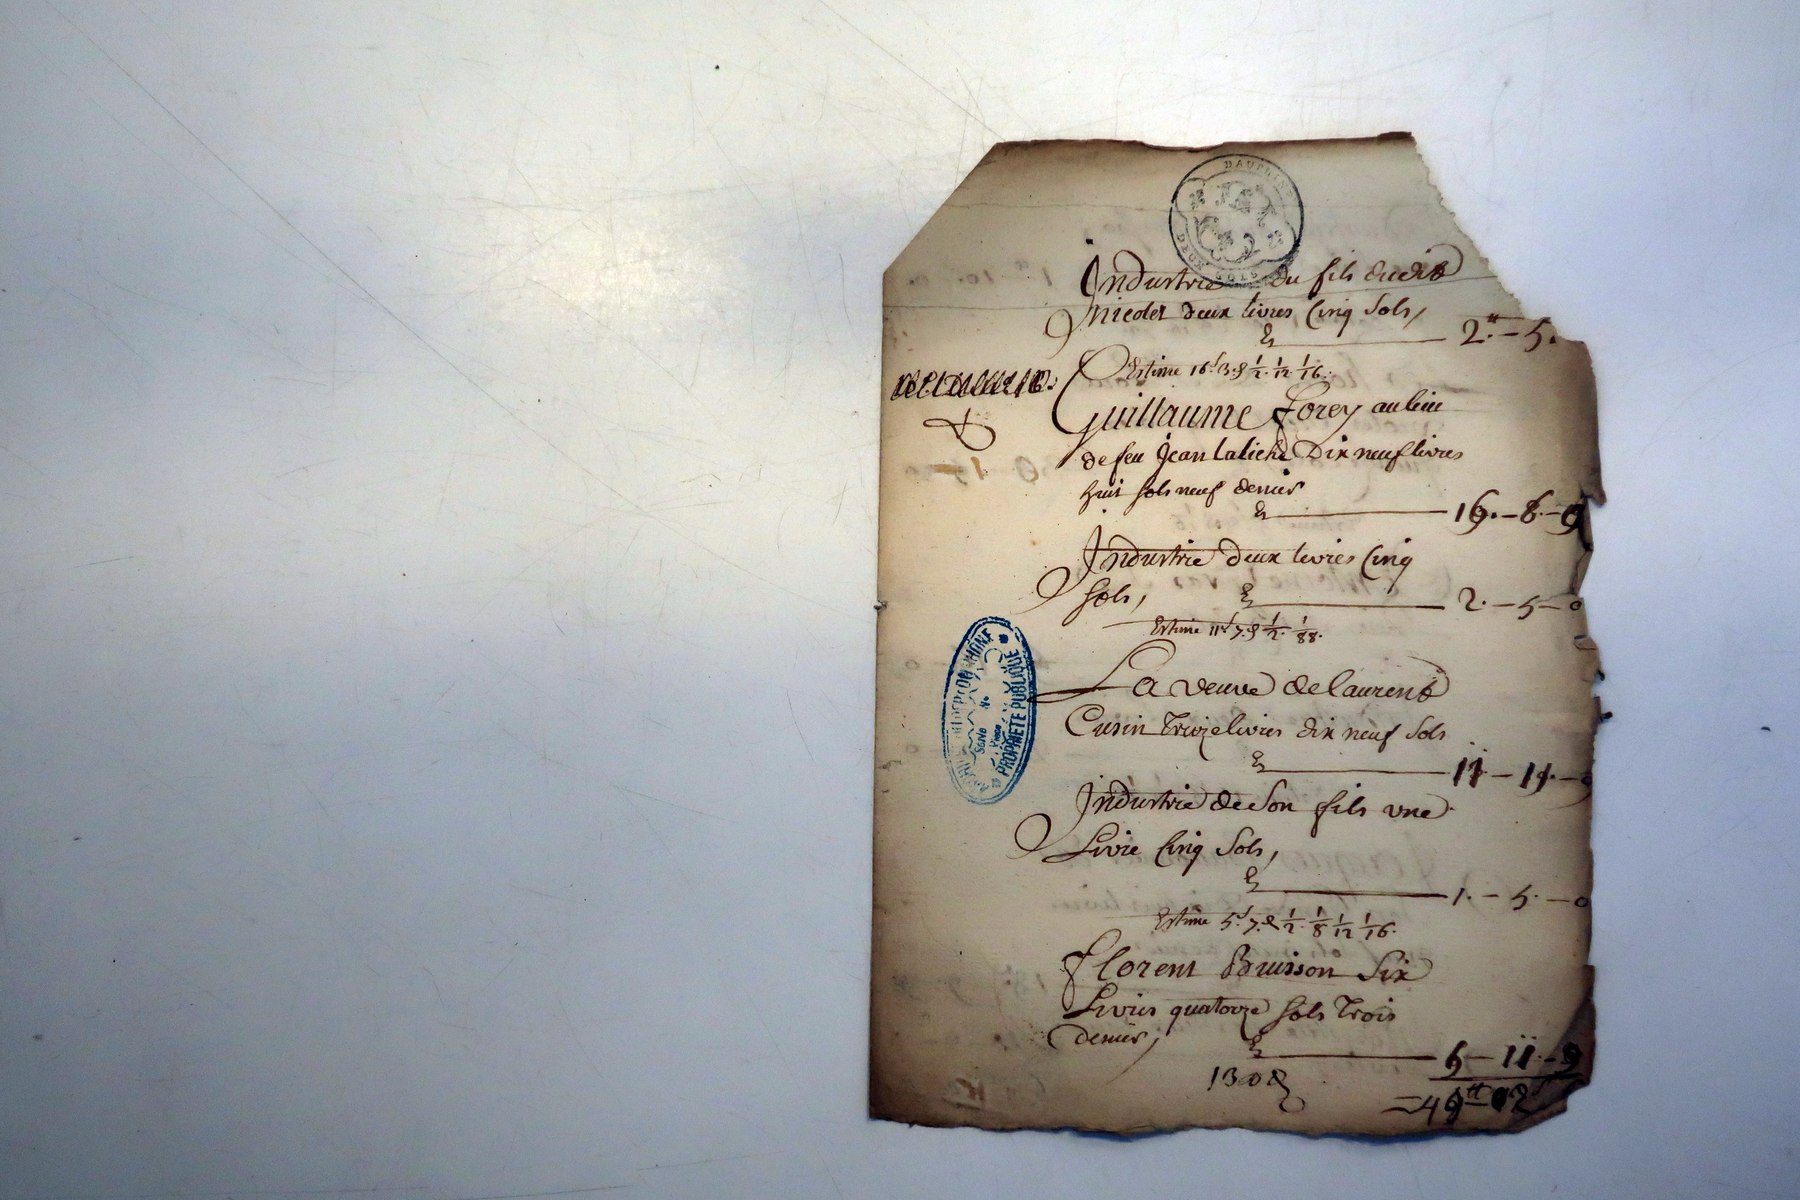 DAUPHINÉ
DEUX SOLS
Industrie du fils dudit
Micolet deux livres Cinq Sols,
2.ᵗᵗ - 5.
Estime 16.ˢ 3.d 1/2. 1/12. 1/16.
Guillaume Forey au lieu
de feu Jean Dix neuf livres
huit sols neuf denier
19. - 8. - 9
Industrie deux livres Cinq
Sols,
2. - 5 - 0
Estime 11ˢ 7.d 1/2. 1/88.
La veuve de laurent
Cusin livres dix neuf Sols
Industrie de Son fils une
Livre Cinq Sols,
1. - 5. - 0
Estime 5.ˢ 7.d 1/2. 1/8 1/12 1/16.
Florent Buisson Six
Livres quatorze Sols Trois
denier,
PROPRIÉTÉ PUBLIQUE